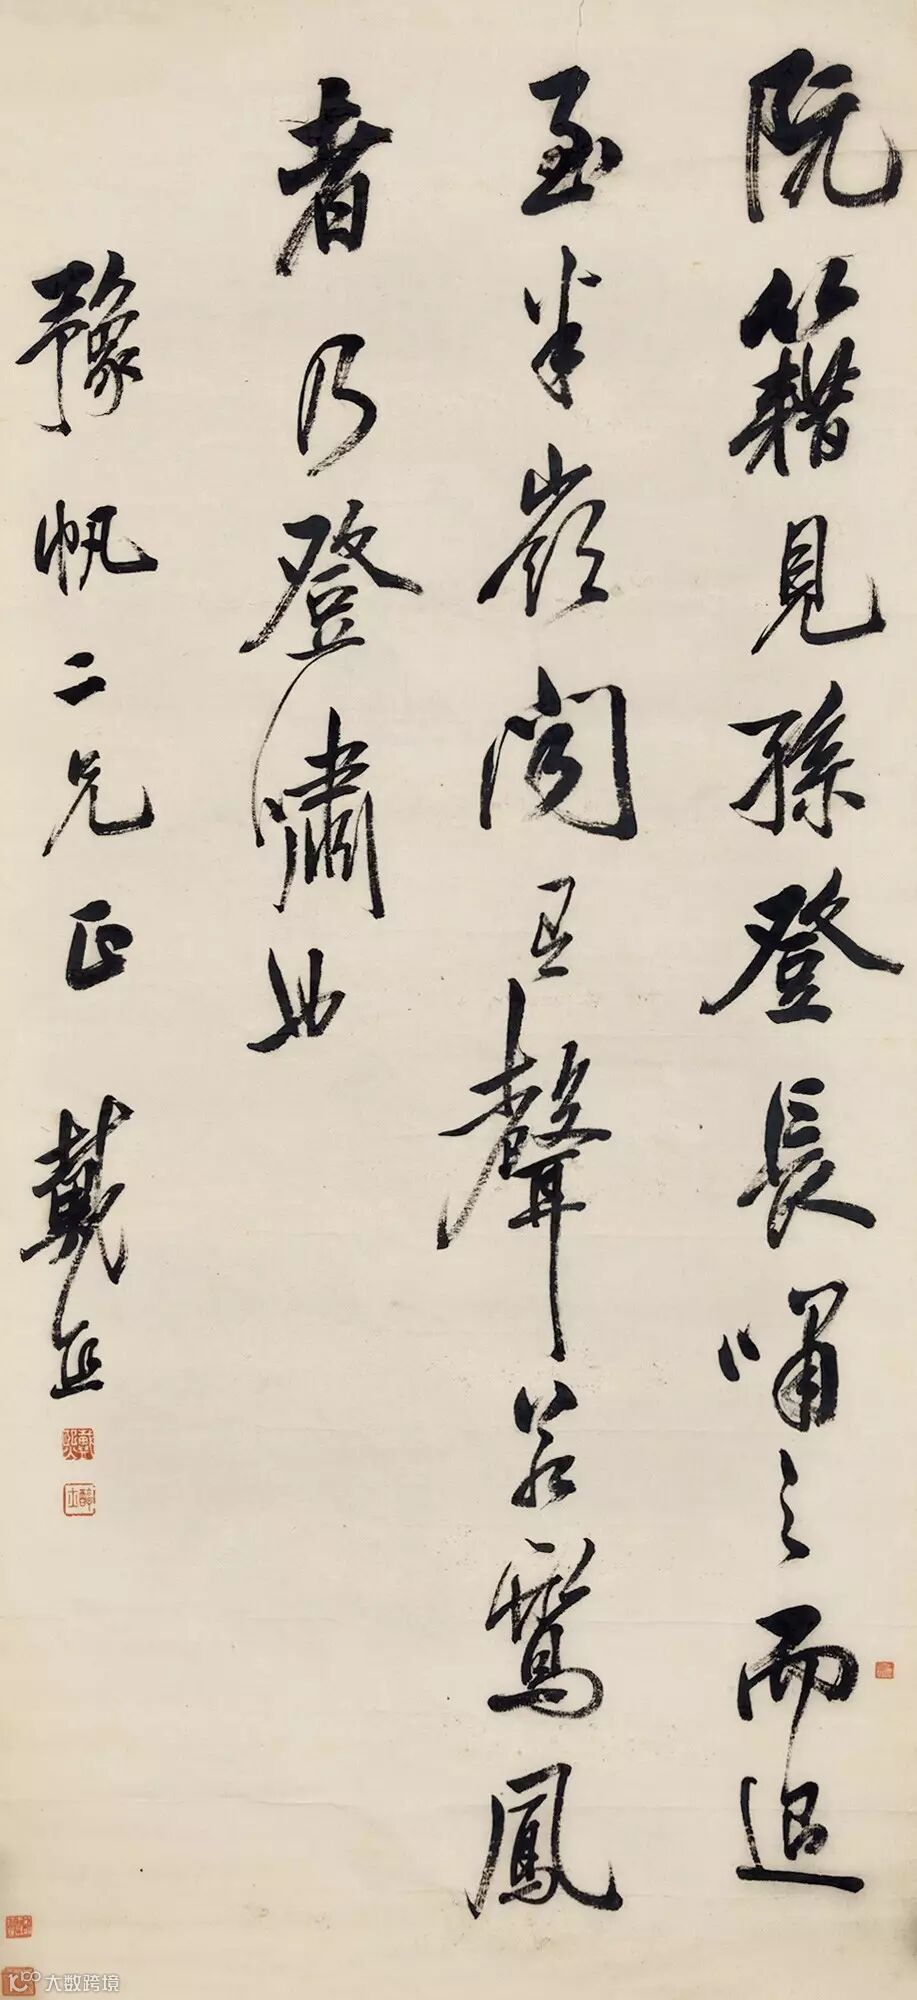 阮籍見孫登長嘯之而退
至半嶺聞有聲若鸞鳳
者乃登嘯也
豫帆二兄正 戴熙
戴熙
醇士
大数跨境